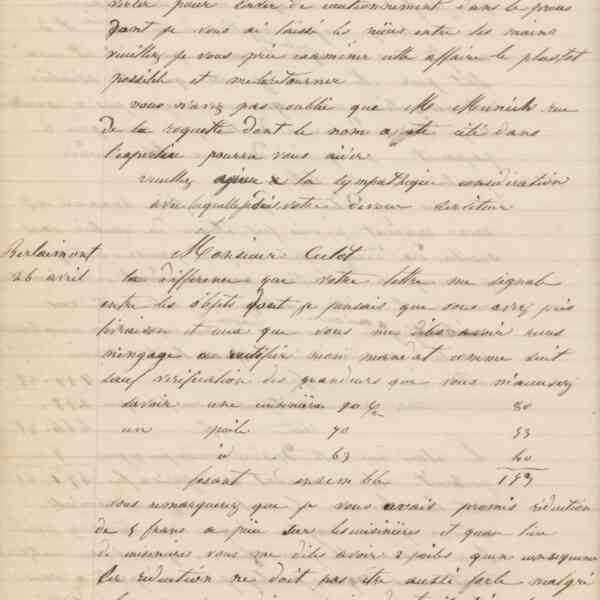 pour de cautionnement dans le
dont je vous ai laissé les entre les mains
veuillez je vous prie examiner cette affaire le plustot
possible et me le retourner
vous n'avez pas oublié que M. Munich rue
de la roquette dont le nom a été cité dans
l'expertise pourra vous aider
veuillez agréer la sympathique considération
avec laquelle je suis votre dévoué serviteur
Berlaimont Monsieur
26 avril la difference que votre lettre me signale
entre les objets dont je pensais que vous aviez pris
livraison et ceux que vous me dites avoir reçus
m'engage a rectifier mon mandat comme suit
sauf verification des grandeurs que vous m'accusez
savoir une cuisinière 90 80
un poile 70 33
d 63 40
fesant ensemble 153
vous remarquerez que je vous avais promis réduction
de 5 francs a pièce sur les cuisinières et qu'au lieu
de cuisinières vous me dites avoir 2 poiles qu'en consequence
la reduction ne doit pas être aussi forte malgré